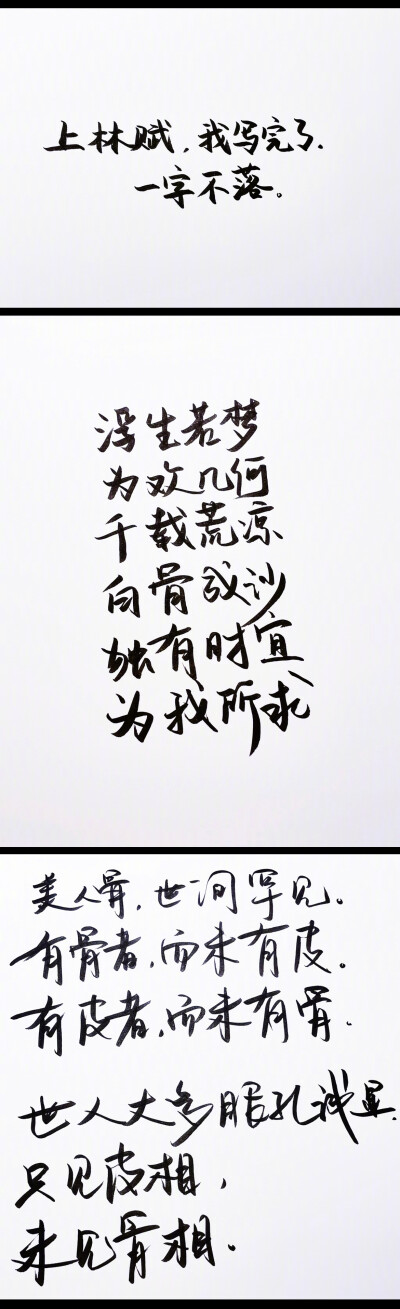 上林赋，我写完了.
一字不落。
浮生若梦
为欢几何
千载荒凉
白骨成沙
独有时宜
为我所求
美人骨，世间罕见。
有骨者，而未有皮。
有皮者，而未有骨.
世人大多眼孔浅显.
只见皮相，
未见骨相。